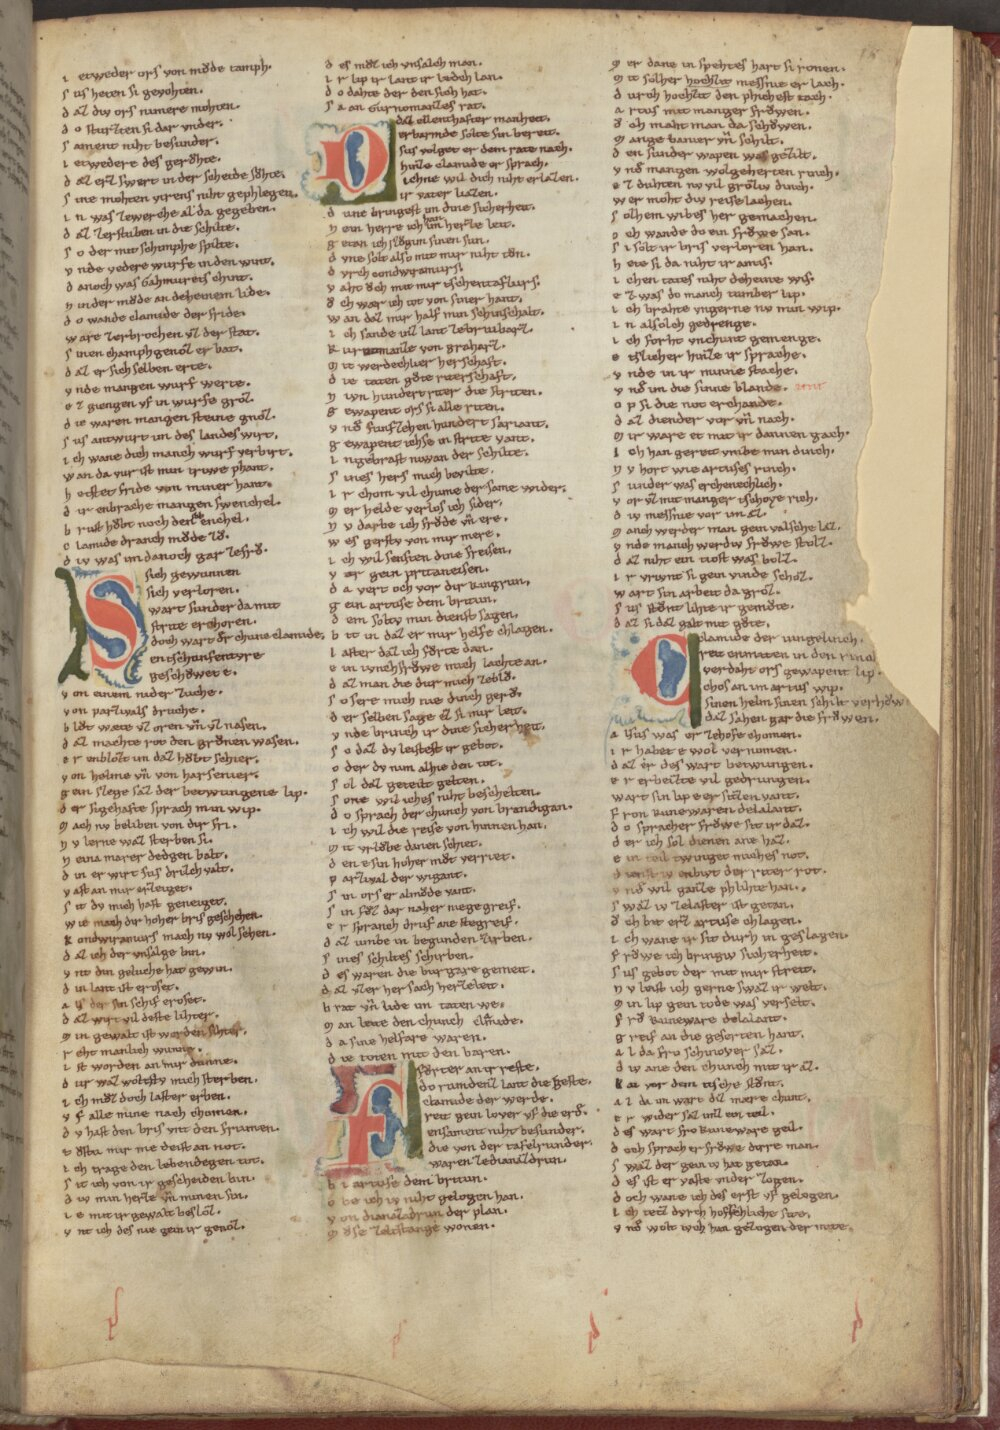 i etweder ors von mͦde tamph.
s us heten si gevohten.
d az div ors nimere mohten.
d o sturzten si dar vnder.
s ament niht besunder.
i etwedere des gerͦhte.
d az erz swert in der scheide sͦhte.
s ine mohten virens niht gephlegen.
i n was zewerche al da gegeben.
d az zerstuben in die schilte.
s o der mit schimphe spilte.
v nde vedere wurfe in den wint.
d anoch was Gahmurets chint.
n inder mͦde an deheinem lide.
d o wande clamide der fride.
w are zerbrochen vz der stat.
s inen champhgenoz er bat.
d az er sich selben erte.
v nde mangen wurf werte.
e z giengen vf in wurfe groz.
d ie waren mangen steine gnoz.
s us antwurt im des landes wirt.
i ch wane dich manch wurf verbirt.
w an da vur ist min triwe phant.
h etstet fride von miner hant.
d ir enbrache mangen swenchel.
b rust hͦbt noch den schenchel.
c lamide dranch mͦde zͦ.
d iv was im danoch gar zefrͦ.
Sich gewunnen
sich verloren.
wart sunder da mit
strite erchoren.
doch wart dr chunc clamide,
entschunfentyre
geschͦwet e.
v on einem nider zuche.
v on parzivals druche.
b lͦt wate vz oren vn vz nasen.
d az machte rot den grͦnen wasen.
e r enblozt im daz hͦbt schier.
v on helme vn von harsenier.
g ein slege saz der betwungene lip.
d er sigehafte sprach min wip.
m ach nv beliben von dir fri.
n v lerne waz sterben si.
n eina marer degen balt.
d in er wirt sus drizch valt.
v ast an mir erzeiget.
s it dv mich hast geneiget.
w ie mach dir hoher bris geschehen.
k ondwiramurs mach nv wol sehen.
d az ich der vnsalge bin.
v nt din geluche hat gewin.
d in lant ist erloset.
a ls der sin schif eroset.
d az wirt vil deste lihter.
m in gewalt ist worden sihter.
r eht manlich wunne.
i st worden an mir dunne.
d ur waz woltstv mich sterben.
i ch mͦz doch laster erben.
v f alle mine nach chomen.
d v hast den bris vnt den frumen.
t ͦstu mir me deist an not.
i ch trage den lebendegen tot.
s it ich von ir gescheiden bin.
d iv min herze vn minen sin.
i e mit ir gewalt besloz.
v nt ich des nie gein ir genoz.
d es mͦz ich vnsalch man.
i r lip ir lant ir ledch lan.
d o dahte der den sich hat.
s a an Gurnomanzes rat.
Daz ellenthafter manheit.
erbarmde solte sin bereit.
sus volget er dem rate nach.
hinze clamide er sprach.
ichne wil dich niht erlazen.
ir vater liazen.
d une bringest im dine sicherheit.
n ein herre ich han im herze leit.
g etan ich slͦgim sinen sun.
d vne solt also mit mir niht tͦn.
d vrch condwiramurs.
v aht ͦch mit mir tschentaflurs.
ͦ ch war ich tot von siner hant.
w an daz mir half min schinschalt.
i ch sande inz lant zebrubarz.
k urnomanze von graharz.
m it werdechlier herschaft.
d ie taten gͦte riterschaft.
n ivn hundert riter die striten.
g ewapent ors si alle riten.
v nͦ funfzehen hundert sariant.
g ewapent ichse in strite vant.
i nigebrast niwan der schilte.
s ines hers mich bevilte.
i r chom vil chume der same wider.
m er helde verlos ich sider.
n v darbe ich frͦde vn ere.
w es gerstv von mir mere.
i ch wil senften dine freisen.
v ar gein pritaneisen.
d a vert och vor dir kingrun.
g ein artuse dem britun.
d em soltv min dienst sagen.
b it in daz er mir helfe chlagen.
l aster daz ich fͦrte dan.
e in iunchfrͦwe mich lachte an.
d az man die dur mich zeblͦ.
s o sere mich nie dinch gerͦ.
d er selben sage ez si mir leit.
v nde brinch ir dine sicherheit.
s o daz dv leistest ir gebot.
o der dv nim alhie den tot.
s ol daz geteilt gelten.
s one wil iches niht beschelten.
d o sprach der chunch von brandigan.
i ch wil die reise von hinnen han.
m it vrlͦbe danen schiet.
d en e sin hoher mͦt verriet.
p arzival der wigant.
s in ors er almͦde vant.
s in fͦz dar naher niegegreif.
e r spranch druf ane stegreif.
d az umbe in begunden zirben.
s ines schiltes schirben.
d es waren die burgare gemeit.
d az vzer her sach herzeleit.
b rat vn lide im taten we.
m an leite den chunch clamide.
d a sine helfare waren.
d ie toten mit den baren.
Fͦrter an ir reste.
do rumdenz lant die geste.
clamide der werde.
reit gein lover vf die erd.
ensament niht besunder.
die von der tafelrunder.
waren zedianazdrun.
b i artuse dem britun.
o be ich iv niht gelogen han.
v on dianazdrun der plan.
m ͦse zeltstange wonen.
m er dane in spehtes hart si ronen.
m it solher hochzit messnie er lach.
d urch hochzit den phichest tach.
a rtus mit manger frͦwen.
ͦ ch maht man da schͦwen.
m ange banier vn schilt.
d en sunder wapen was gezilt.
v nͦ mangen wolgeherten rinch.
e z duhten nv vil grͦziv dinch.
w er moht div reiselachen.
s olhem wibes her gemachen.
o ch wande do ein frͦwe san.
s i solt ir bris verloren han.
h ete si da niht ir amis.
i chen tates niht deheine wis.
e z was do manch tumber lip.
i ch brahte vngerne nv min wip.
i n alsolch gedrenge.
i ch forht vnchunt gemenge.
e tslicher hinze ir sprache.
v nde in ir minne stache.
v nͦ im die sinne blande.
o p si die not erchande.
d az diender vor vn nach.
m ir ware et mit ir dannen gach.
I ch han geret vmbe min dinch.
n v hort wie artuses rinch.
s under was erchenechlich.
v or vz mit manger tschoye rich.
d iv messnie vor im az.
m anch werder man gein valsche laz.
v nde manch werdiv frͦwe stolz.
d az niht ein tiost was bolz.
i r vrivnt si gein vinde schoz.
w art sin arbeit da groz.
s us stͦnt lihte ir gemͦte.
d az si daz galt mit gͦte.
Clamide der iungelinch.
reit enmiten in den rinc
verdaht ors gewapent lip
chos an im artus wip.
sinen helm sinen schilt verhͦw
daz sahen gar die frͦwen.
a lsus was er zehofe chomen.
i r habet e wol vernomen.
d az er des wart betwungen.
e r erbeizte vil gedrungen.
wart sin lip e er sitzen vant.
f ron kunewaren delalant.
d o spracher frͦwe sit ir daz.
d er ich sol dienen ane haz.
e in teil twinget miches not.
d ienst iv enbivt der riter rot.
v nͦ wil ganze phlihte han.
s waz iv zelaster ist getan.
ͦ ch bit erz artuse chlagen.
i ch wane ir sit durh in geslagen.
f rͦwe ich bringiv sicherheit.
s us gebot der mit mir streit.
n v leist ich gerne swaz ir welt.
m in lip gein tode was verselt.
f rͦ kuneware delalant.
g reif an die gesorten hant.
a l da fro schinoyer saz.
d iv ane den chunch mit ir az.
k ai vor dem tische stͦnt.
a l da im wart diz mare chunt.
e r wider saz imz ein teil.
d es wart fro kuneware geil.
d och sprach er frͦwe dirre man.
s waz der gein iv hat getan.
d es ist er vaste vnder zogen.
d och wane ich des erst vf gelogen.
i ch tetz dvrch hofschliche site.
v nͦ wolt ivch han gezogen der mite.